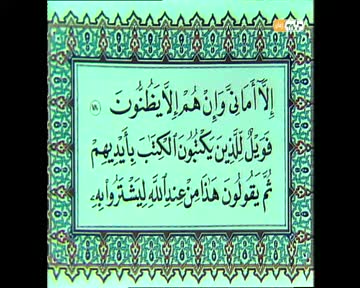 إِلَّآ أَمَانِىَّ وَإِنْ هُمْ إِلَّا يَظُنُّونَ ٧٨
فَوَيْلٌ لِّلَّذِينَ يَكْتُبُونَ ٱلْكِتَٰبَ بِأَيْدِيهِمْ
ثُمَّ يَقُولُونَ هَٰذَا مِنْ عِندِ ٱللَّهِ لِيَشْتَرُوا۟ بِهِۦ